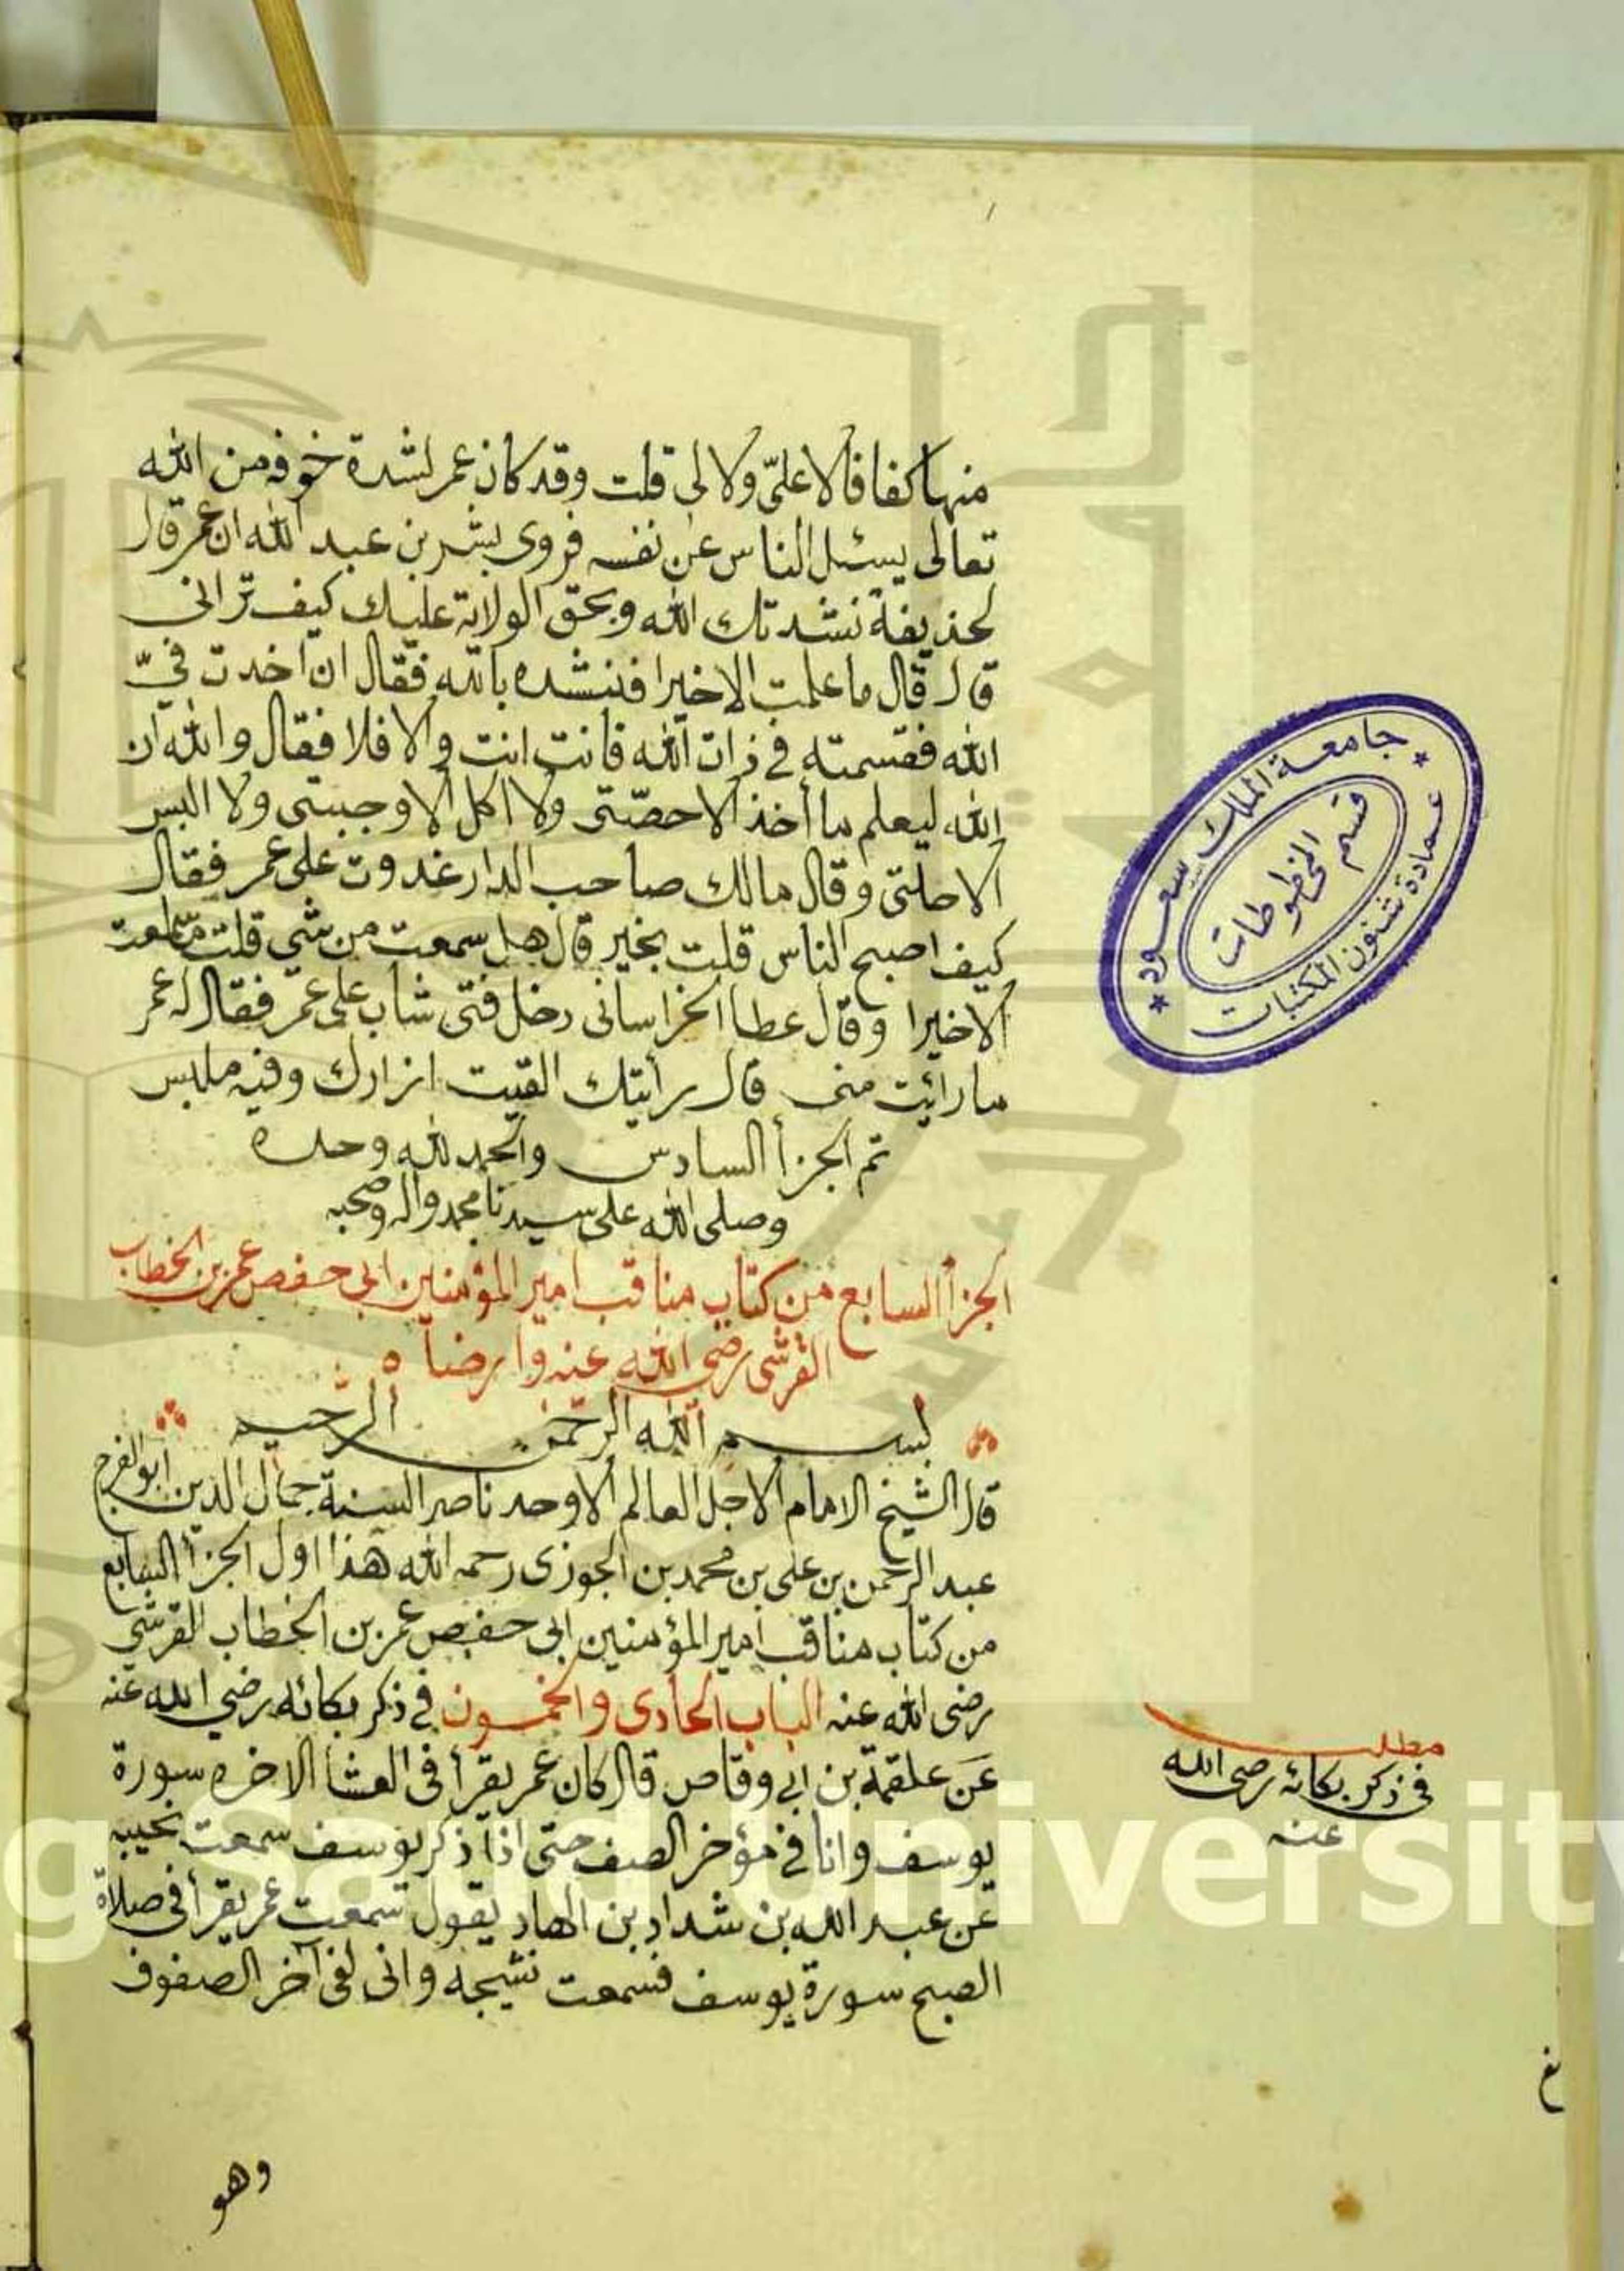 منها كفافا لا علىّ ولا لى قلت وقد كان عمر لشدة خوفه من الله
تعالى يسئل الناس عن نفسه فروى بشر بن عبد الله ان عمر قال
لحذيفة نشدتك الله وبحق الولاية عليك كيف ترانى
قال قال ما علمت الا خيرا فننشده بالله فقال ان اخدت فيّ
الله فقسمته في ذات الله فانت انت والا فلا فقال والله ان
الله ليعلم ما أخذ الا حصّتى ولا اكل الا وجبتى ولا البس
الا حلتى وقال مالك صاحب الدار غدوت على عمر فقال
كيف اصبح الناس قلت بخير قال هل سمعت من شي قلت ما سمعت
الا خيرا وقال عطا الخراسانى دخل فتى شاب على عمر فقال له عمر
ما رائيت منى قال رأيتك القيت ازارك وفيه ملبس
تم الجزأ السادس والحمد لله وحده
وصلى الله على سيدنا محمد واله وصحبه
الجزأ السابع من كتاب مناقب امير المؤمنين ابى حفص عمر بن الخطاب
القرشى رضى الله عنه وارضاه
بسم الله الرحمن الرحيم
قال الشيخ الامام الاجل العالم الاوحد ناصر السنة جمال الدين ابو الفرج
عبد الرحمن بن على بن محمد بن الجوزى رحمه الله هذا اول الجزأ السابع
من كتاب مناقب امير المؤمنين ابى حفص عمر بن الخطاب القرشي
رضى الله عنه الباب الحادى والخمسون في ذكر بكائه رضي الله عنه
عن علقمة بن ابي وقاص قال كان عمر يقرأ فى العشا الاخره سورة
يوسف وانا في مؤخر الصف حتى اذا ذكر يوسف سمعت نحيبه
عن عبد الله بن شداد بن الهاد يقول سمعت عمر يقرأ فى صلاة
الصبح سورة يوسف فسمعت نشيجه وانى لفى آخر الصفوف
وهو
مطلب
في ذكر بكائه رضى الله
عنه
جامعة الملك سعود
قسم
المخطوطات
عمادة شئون المكتبات
g Saud University